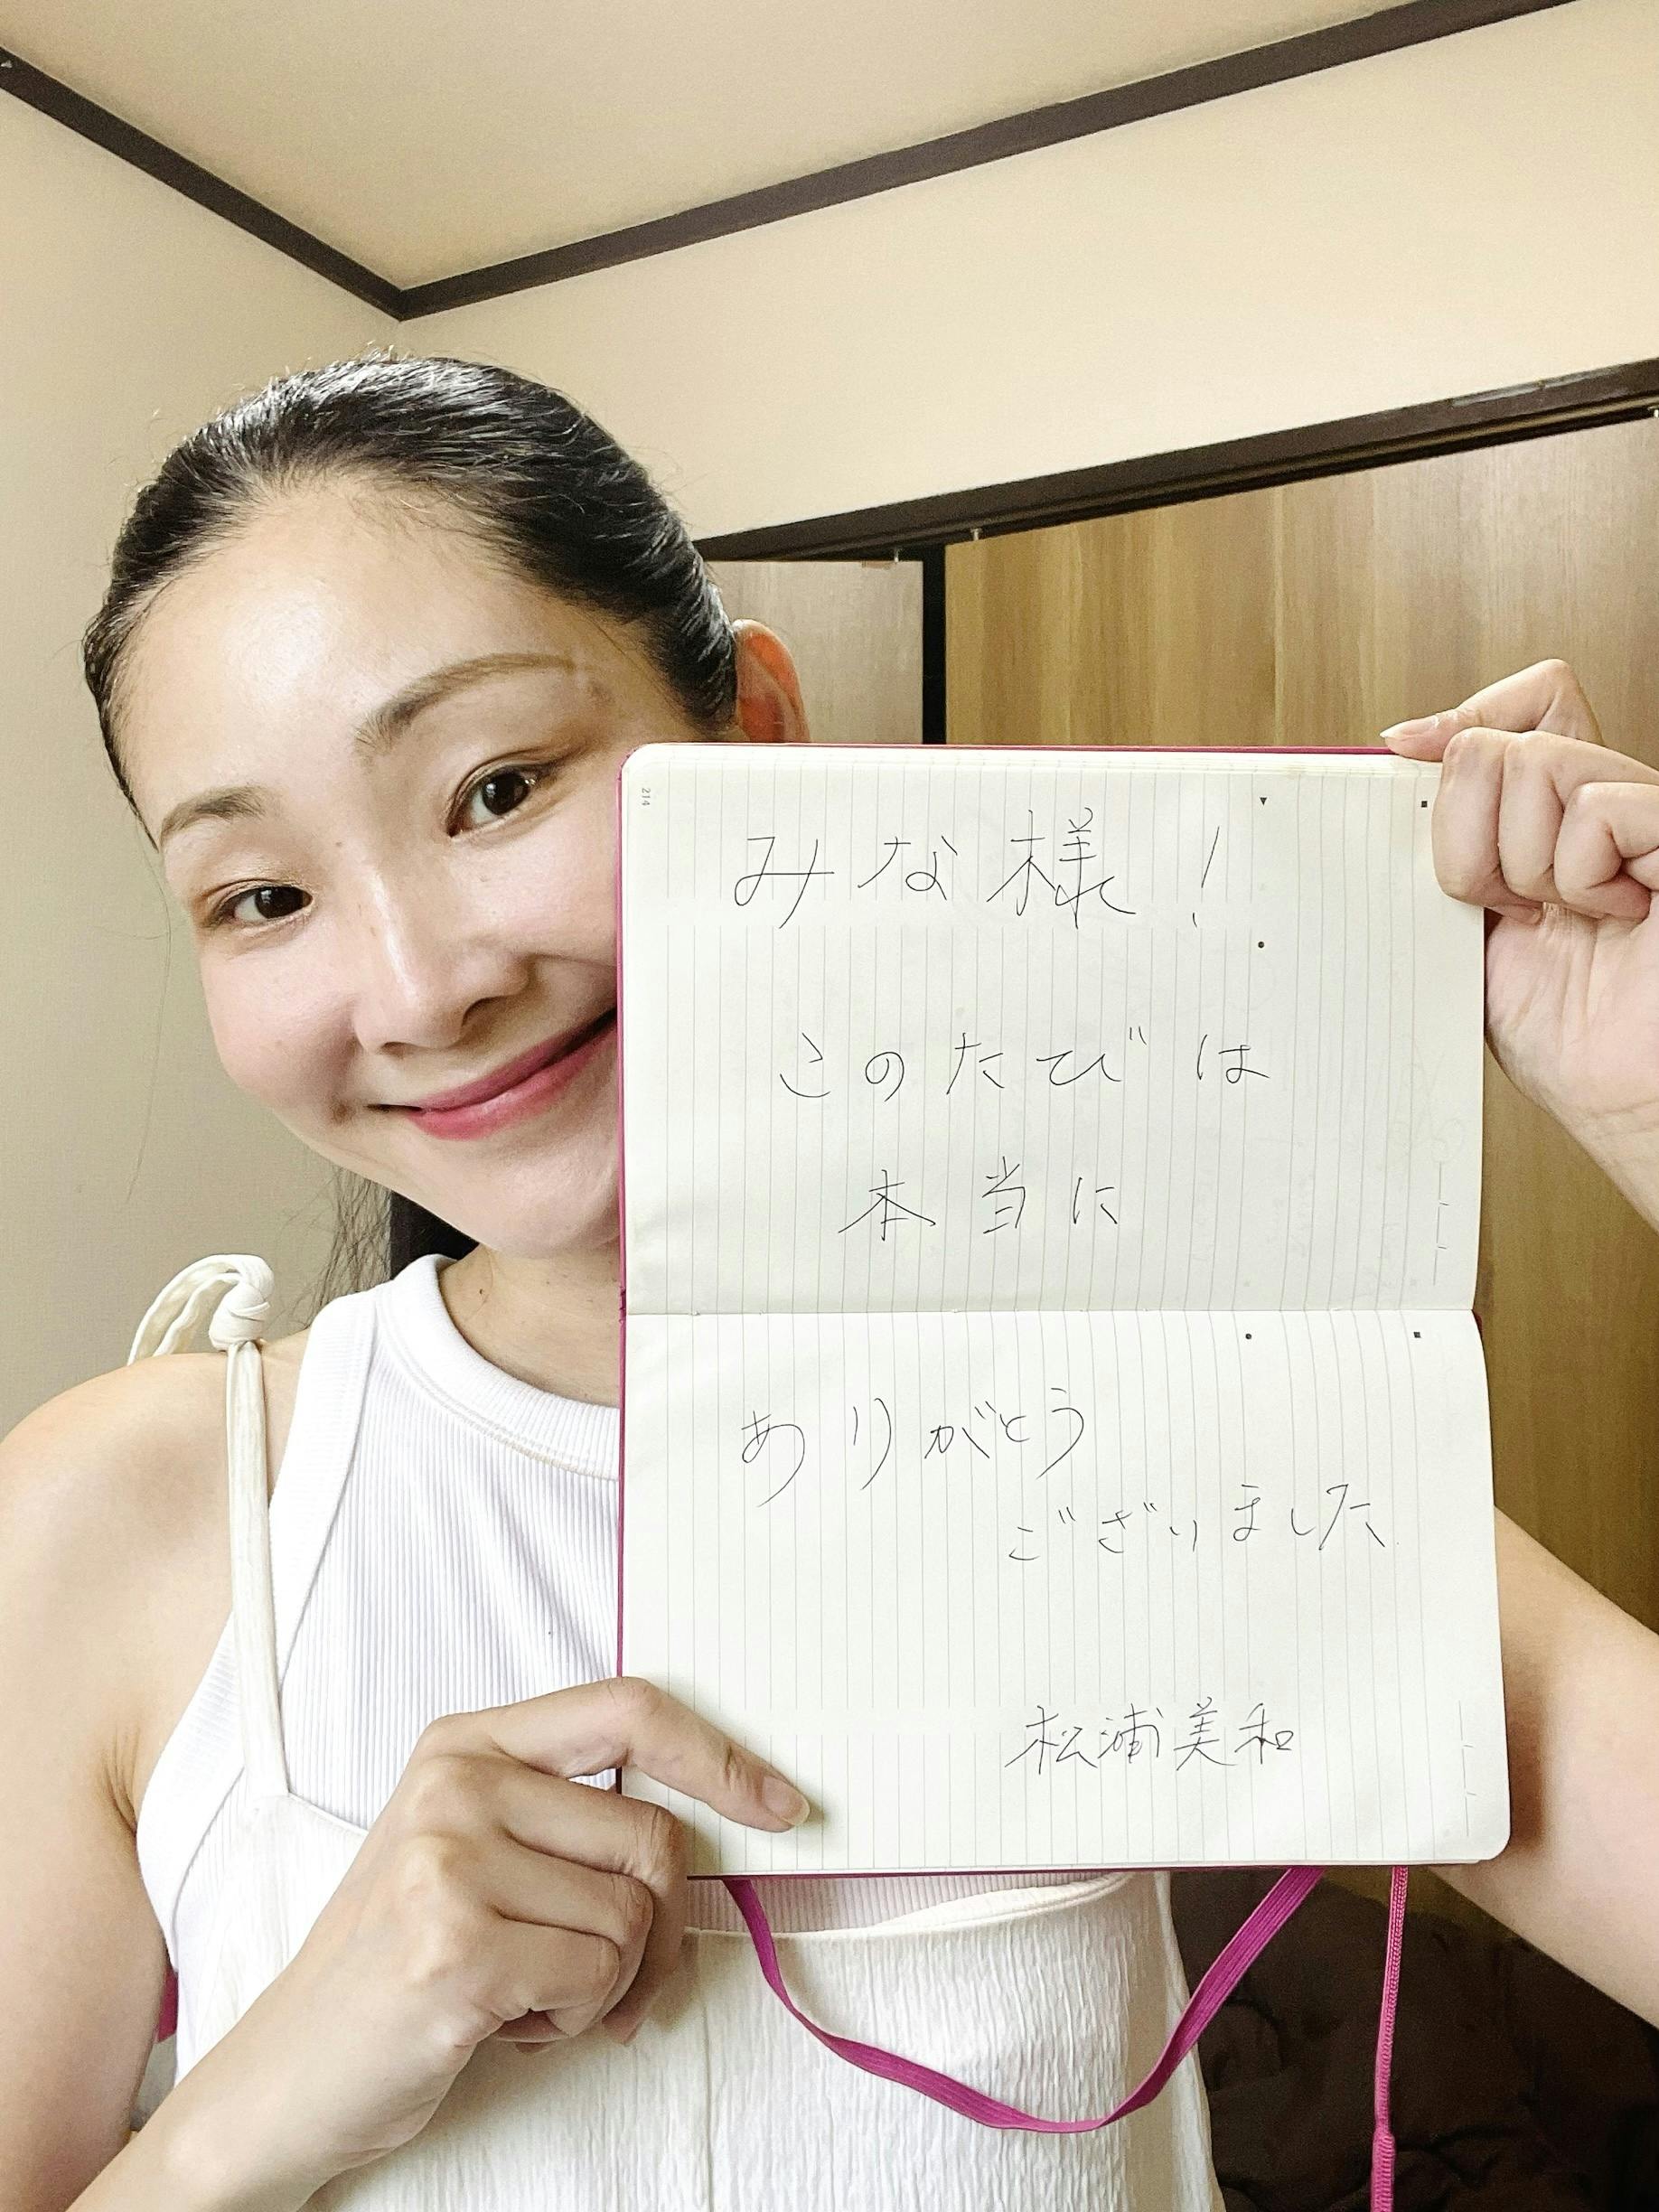 214
みな様！
このたびは
本当に
ありがとう
ございました
松浦美和